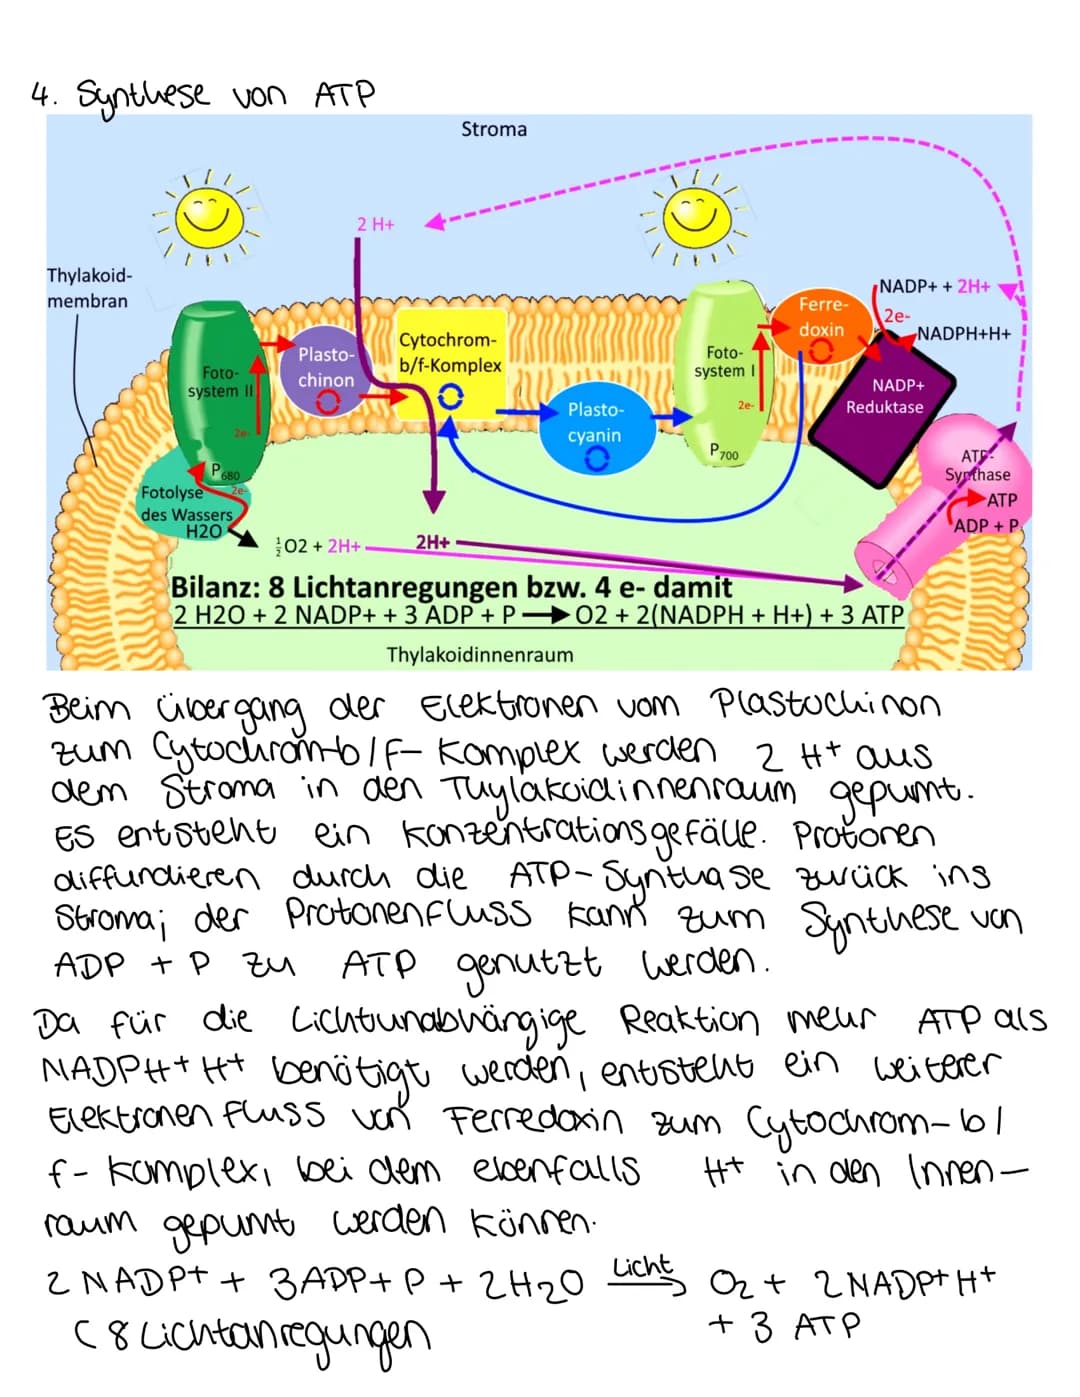 4. Synthese von ATP
Stroma
2 H+
Thylakoid-
membran
NADP+ + 2H+
2e-
NADPH+H+
Ferre-
doxin
Cytochrom-
b/f-Komplex
Plasto-
chinon
Foto-
system II
2e-
P680
Foto-
system I
2e-
P700
NADP+
Reduktase
Plasto-
cyanin
ATP-
Synthase
ATP
ADP + P
Fotolyse
des Wassers
H2O
2e-
½O2 + 2H+
2H+
Bilanz: 8 Lichtanregungen bzw. 4 e- damit
2 H2O + 2 NADP+ + 3 ADP + P → O2 + 2(NADPH + H+) + 3 ATP
Thylakoidinnenraum
Beim Übergang der Elektronen vom Plastochinon
zum Cytochrom-b/f- Komplex werden 2 H+ aus
dem Stroma in den Thylakoidinnenraum gepumt.
Es entsteht ein Konzentrationsgefälle. Protonen
diffundieren durch die ATP-Synthase zurück ins
Stroma; der Protonenfluss kann zum Synthese von
ADP + P zu ATP genutzt werden.
Da für die Lichtunabhängige Reaktion mehr ATP als
NADPH+H+ benötigt werden, entsteht ein weiterer
Elektronenfluss von Ferredoxin zum Cytochrom-b/
f- Komplex, bei dem ebenfalls H+ in den Innen-
raum gepumt werden können.
2 NADP+ + 3ADP+P + 2H2O Licht→ O2 + 2NADP+H+
(8 Lichtanregungen + 3 ATP